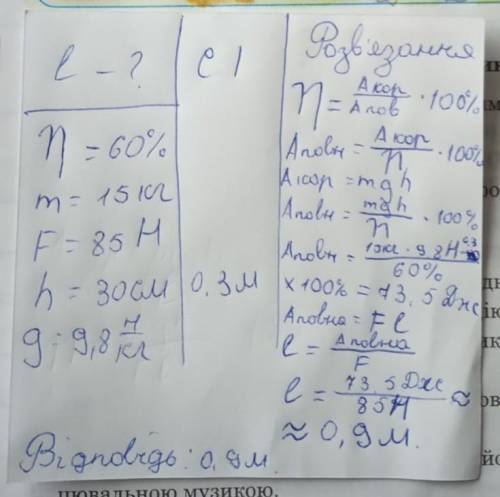 l - ?
η = 60%
m = 15 кг
F = 85 Н
h = 30 см
g = 9,8 Н/кг
СІ
0,3 м
Розв'язання
η = Aкор/Aпов · 100%
Aповн = Aкор/η · 100%
Aкор = mgh
Aповн = mgh/η · 100%
60%
× 100% = 73,5 Дж
Aповна = Fl
l = Aповна/F
l = 73,5 Дж/85 Н ≈
≈ 0,9 м.
Відповідь: 0,9 м.
цювальною музикою.